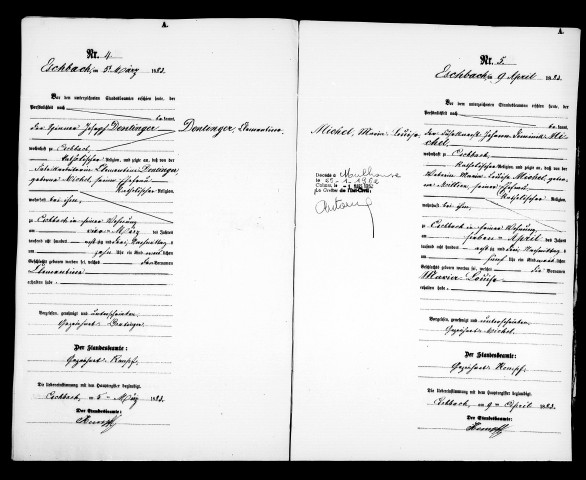 A.
Nr. 4
Eschbach, am 5ten März 1883.
Vor dem unterzeichneten Standesbeamten erschien heute, der
Persönlichkeit nach
bekannt,
der Spinner Joseph Dentinger
wohnhaft zu Eschbach,
katholischer Religion, und zeigte an, daß von der
Clementine Dentinger
geborene Michel, seiner Ehefrau
katholischer Religion,
wohnhaft bei ihm,
zu Eschbach in seiner Wohnung
am vierten März des Jahres
tausend acht hundert achtzig und drei Vormittags
um zehn Uhr ein Kind
Geschlechts geboren worden sei, welches den Vornamen
Clementine
erhalten habe.
Vorgelesen, genehmigt und unterschrieben
Gezeichnet: Dentinger
Der Standesbeamte:
Gezeichnet: Kempf.
Die Uebereinstimmung mit dem Hauptregister beglaubigt
Eschbach, am 5ten März 1883.
Der Standesbeamte
Kempf
Dentinger, Clementine.
A.
Nr. 5.
Eschbach, am 9 April 1883.
Vor dem unterzeichneten Standesbeamten erschien heute, der
Persönlichkeit nach
bekannt,
Johann Dominik Mi-
chel,
wohnhaft zu Eschbach,
katholischer Religion, und zeigte an, daß von der
Weberin Maria Louise Michel, gebo-
rene Müller, seiner Ehefrau
katholischer Religion,
wohnhaft bei ihm,
zu Eschbach in seiner Wohnung
am sieben April des Jahres
tausend acht hundert achtzig und drei Nachmittags
um fünf Uhr ein Kind weiblichen
Geschlechts geboren worden sei, welches die Vornamen
Maria Louise
erhalten habe.
Vorgelesen, genehmigt und unterschrieben
Gezeichnet: Michel.
Der Standesbeamte:
Gezeichnet: Kempf.
Die Uebereinstimmung mit dem Hauptregister beglaubigt
Eschbach, am 9ten April 1883.
Der Standesbeamte
Kempf
Michel, Maria Louise
Décédée à Mulhouse
le
Colmar, le
Le Greffier